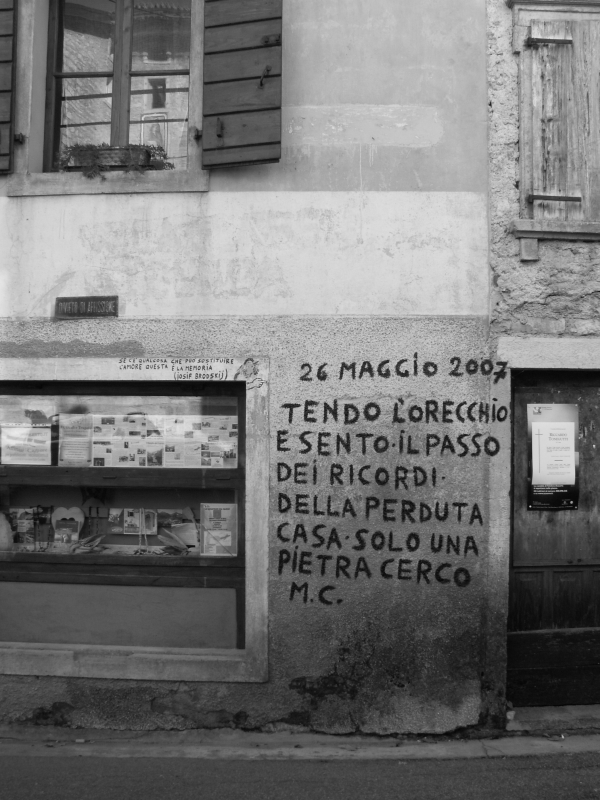 DIVIETO DI AFFISSIONE
SE C'E QUALCOSA CHE PUO SOSTITUIRE
L'AMORE QUESTA E LA MEMORIA
(IOSIF BRODSKIJ)
26 MAGGIO 2007
TENDO L'ORECCHIO
E SENTO·IL PASSO
DEI RICORDI·
DELLA PERDUTA
CASA·SOLO UNA
PIETRA CERCO
M.C.